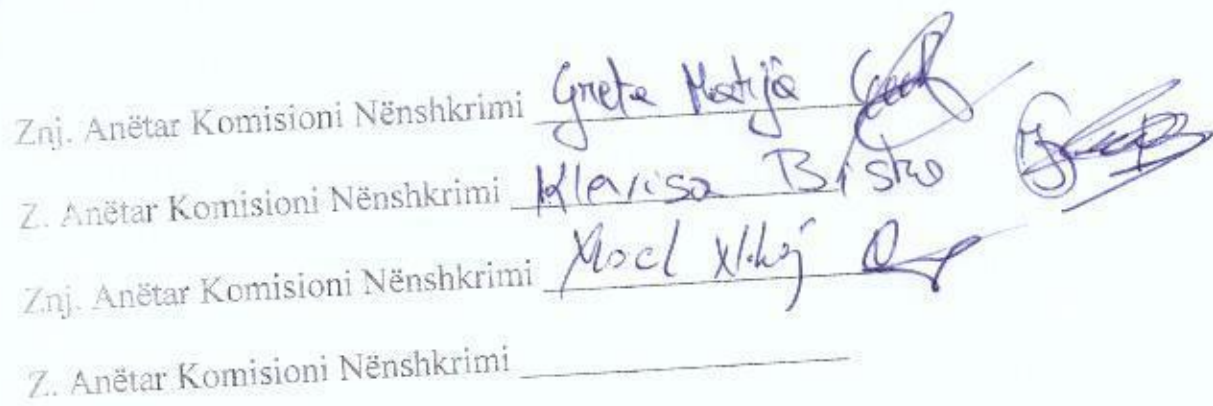 Znj. Anëtar Komisioni Nënshkrimi Greta Matija
Z. Anëtar Komisioni Nënshkrimi Klevisa Bisko
Znj. Anëtar Komisioni Nënshkrimi
Z. Anëtar Komisioni Nënshkrimi